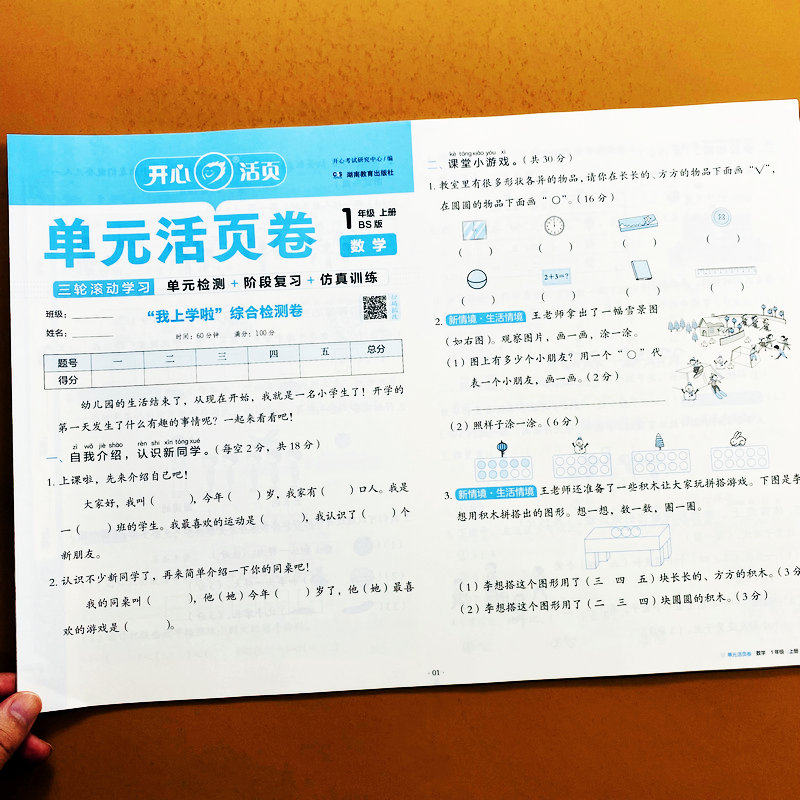 开心 活页
开心考试研究中心/编
湖南教育出版社
单元活页卷
1年级 上册
BS版
数学
三轮滚动学习 单元检测+阶段复习+仿真训练
班级：
姓名：
“我上学啦”综合检测卷
时间：60分钟 满分：100分
题号 一 二 三 四 五 总分
得分
幼儿园的生活结束了，从现在开始，我就是一名小学生了！开学的
第一天发生了什么有趣的事情呢？一起来看看吧！
zì wǒ jiè shào rèn shi xīn tóng xué
一、自我介绍，认识新同学。（每空2分，共18分）
1. 上课啦，先来介绍自己吧！
大家好，我叫（ ），今年（ ）岁，我家有（ ）口人。我是
一（ ）班的学生。我最喜欢的运动是（ ），我认识了（ ）个
新朋友。
2. 认识不少新同学了，再来简单介绍一下你的同桌吧！
我的同桌叫（ ），他（她）今年（ ）岁了，他（她）最喜
欢的游戏是（ ）。
kè táng xiǎo yóu xì
二、课堂小游戏。（共30分）
1. 教室里有很多形状各异的物品，请你在长长的、方方的物品下面画“√”，
在圆圆的物品下面画“○”。（16分）
（ ） （ ） （ ） （ ）
2+3=?
（ ） （ ） （ ） （ ）
2. 新情境·生活情境 王老师拿出了一幅雪景图
（如右图）。观察图片，画一画，涂一涂。
（1）图上有多少个小朋友？用一个“○”代
表一个小朋友，画一画。（2分）
（2）照样子涂一涂。（6分）
3. 新情境·生活情境 王老师还准备了一些积木让大家玩拼搭游戏。下图是李
想用积木拼搭出的图形。想一想，数一数，圈一圈。
（1）李想搭这个图形用了（三 四 五）块长长的、方方的积木。（3分
（2）李想搭这个图形用了（二 三 四）块圆圆的积木。（3分）
· 01 ·
单元活页卷 数学 1年级 上册